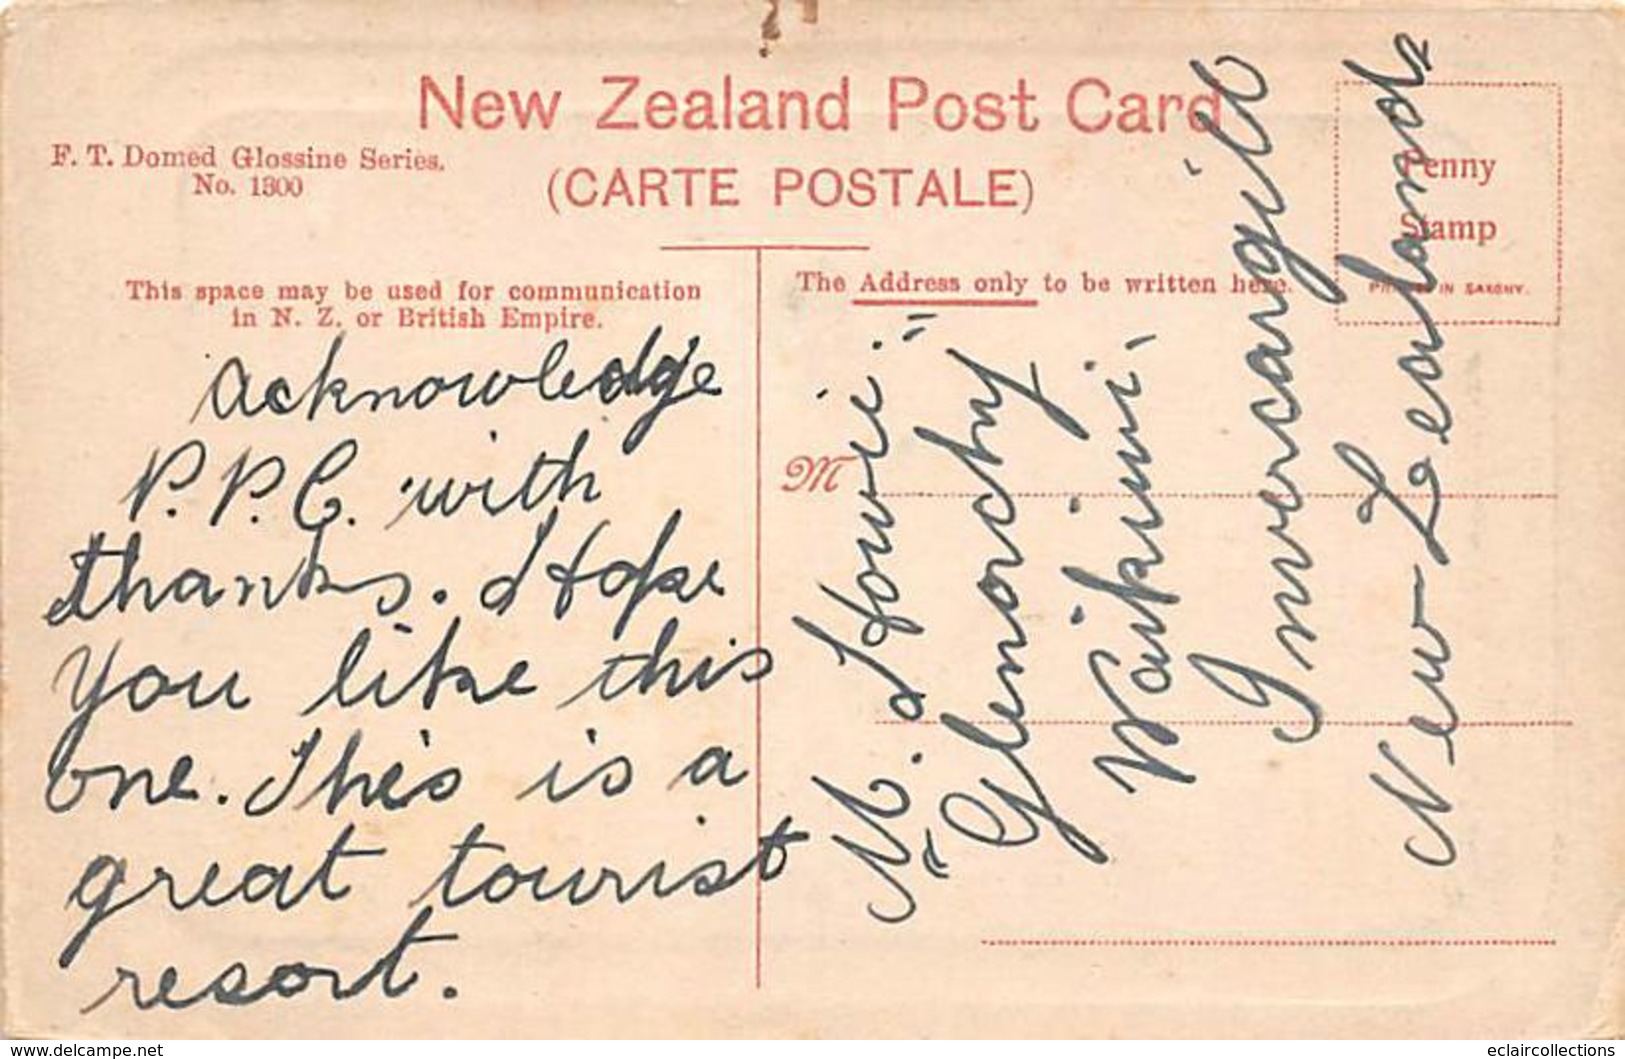 New Zealand Post Card
(CARTE POSTALE)
F. T. Domed Glossine Series.
No. 1300
Penny
Stamp
PRINTED IN SAXONY.
This space may be used for communication
in N. Z. or British Empire.
The Address only to be written here.
acknowledge
P.P.C. with
thanks. I Hope
you like this
one. This is a
great tourist
resort.
M
N. Howie.
"Glenorchy"
Waikiwi,
Invercargill
New-Zealand
www.delcampe.net
eclaircollections